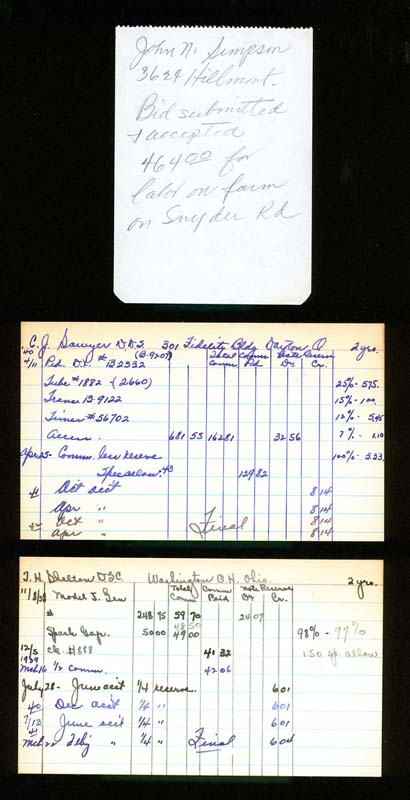 John N. Simpson
3624 Hillmont.
Bid submitted
+ accepted
464 00 for
labor on farm
on Snyder Rd
C. J. Sawyer D.D.S. 301 Fidelity Bldg Dayton, O 2 yrs.
'40 (B-9207) Total Comm Note Reserve
4/11 Ped. D.P. # B2532 Comm Pd Dr Cr.
Tube #1882 - (2660) 25% - 575.
Trans B-9122 15% - 100.
Timer #56702 12% - 5.45
Access. 681 55 162 81 32 56 7% - 1.10
Apr 25 - Comm. less reserve 100% - 3.33
Spec allow. 129 82
41 Oct acct 8 14
Apr " 8 14
Oct " 8 14
42 Apr " Final 8 14
T. H. D.S.C. Washington C.H. Ohio. 2 yrs.
11/8/38 Model J. Gen Total Comm Comm Paid Note Reserve Dr Cr.
# 248 75 59 70 24 07
48 50
Spark Gap. 50 00 49 00 98% - 97%
12/5 ck #888 41 32 1.50 sp. allow
1939
Mch 16 1/2 comm. 42 06
July 28 - June acct 1/4 reserve. 6 01
40 Dec acct 1/4 " 6 01
7/13 June acct 1/4 " 6 01
41
Mch 22 " 1/4 " Final 6 04